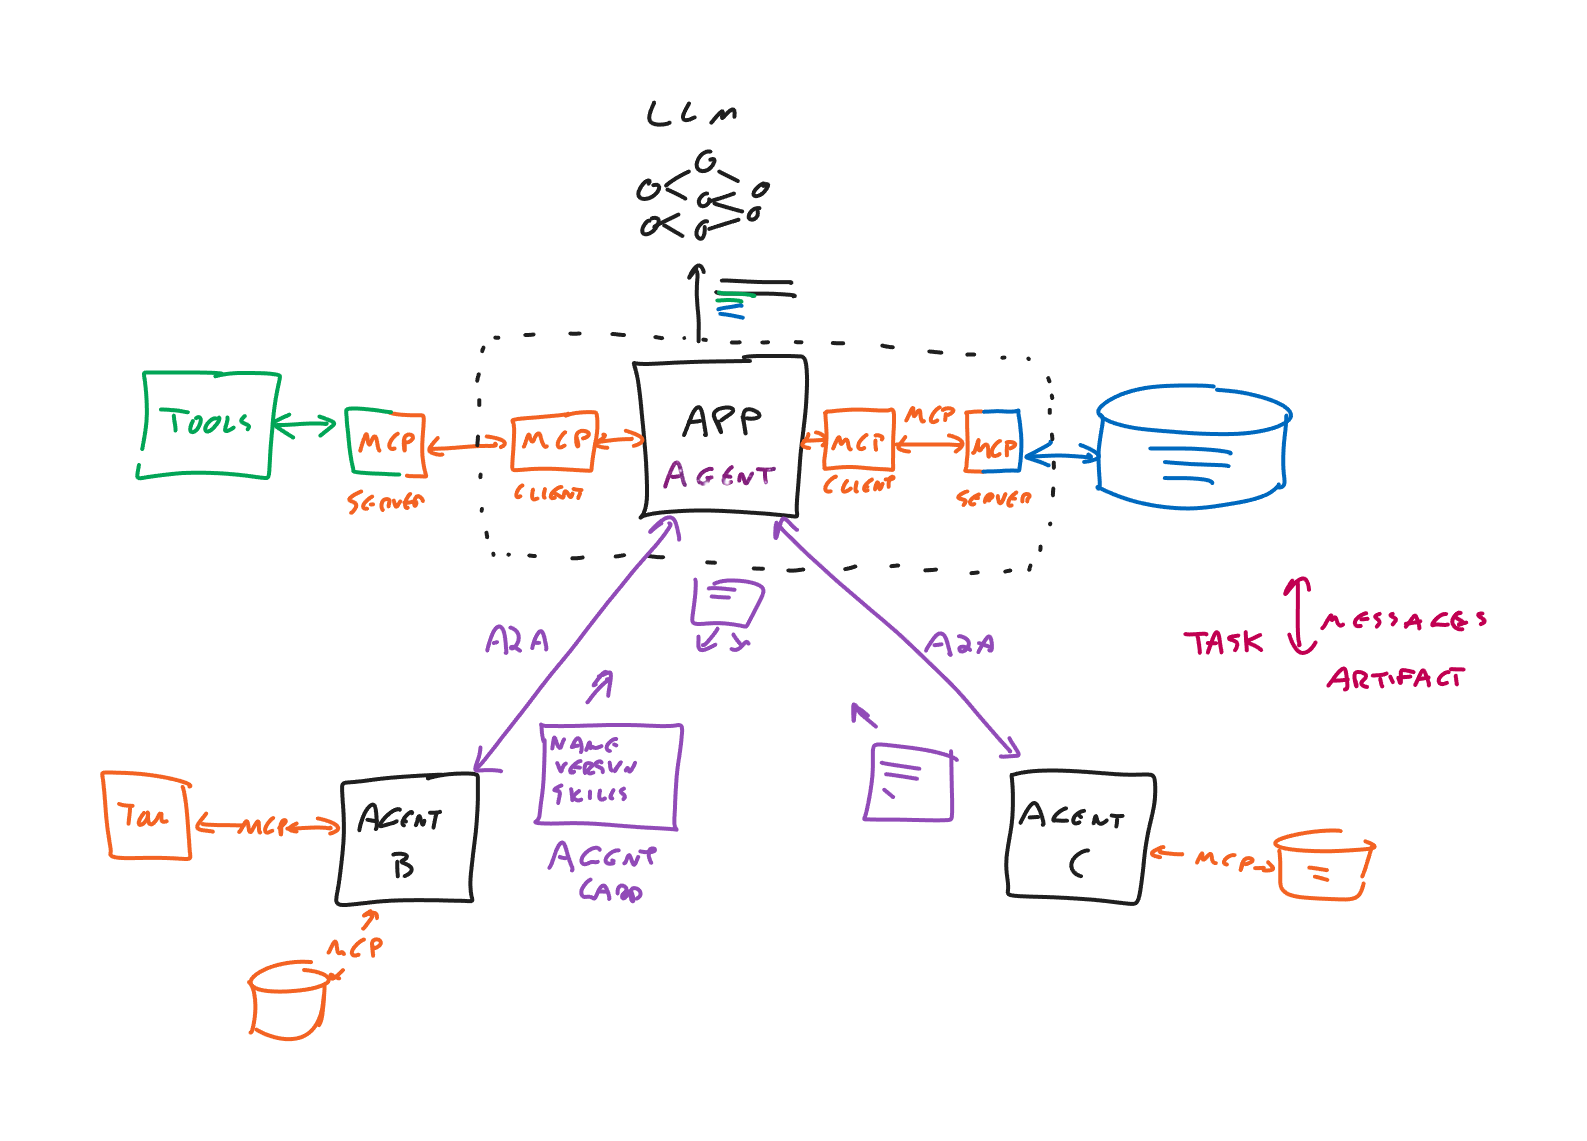 LLM
APP
AGENT
TOOLS
MCP
SERVER
MCP
CLIENT
MCP
CLIENT
MCP
MCP
SERVER
A2A
A2A
TASK
MESSAGES
ARTIFACT
NAME
VERSION
SKILLS
AGENT
CARD
MCP
AGENT
B
MCP
AGENT
C
MCP